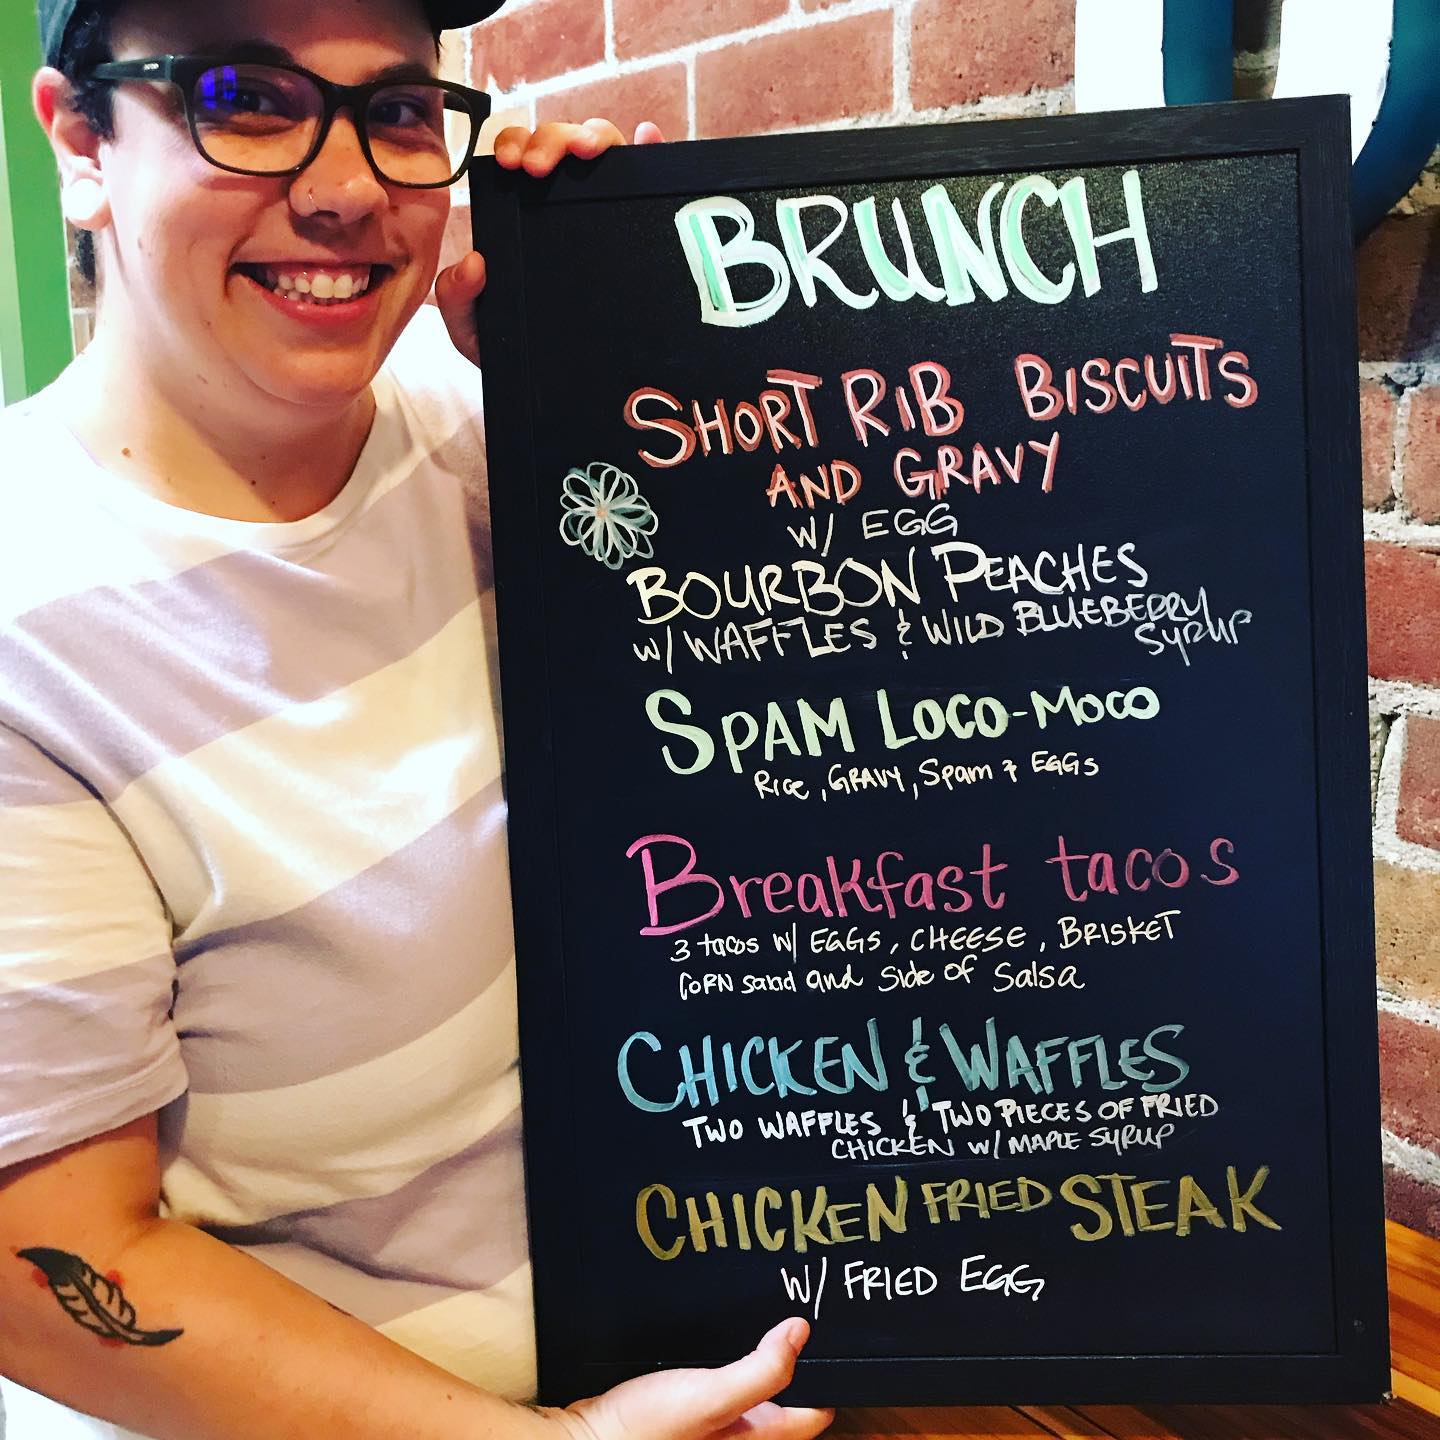 BRUNCH
SHORT RIB BISCUITS
AND GRAVY
W/ EGG
BOURBON PEACHES
W/ WAFFLES & WILD BLUEBERRY
SYRUP
SPAM LOCO-MOCO
RICE, GRAVY, SPAM & EGGS
Breakfast tacos
3 tacos W/ EGGS, CHEESE, BRISKET
CORN salad and side of Salsa
CHICKEN & WAFFLES
TWO WAFFLES & TWO PIECES OF FRIED
CHICKEN W/ MAPLE SYRUP
CHICKEN FRIED STEAK
W/ FRIED EGG